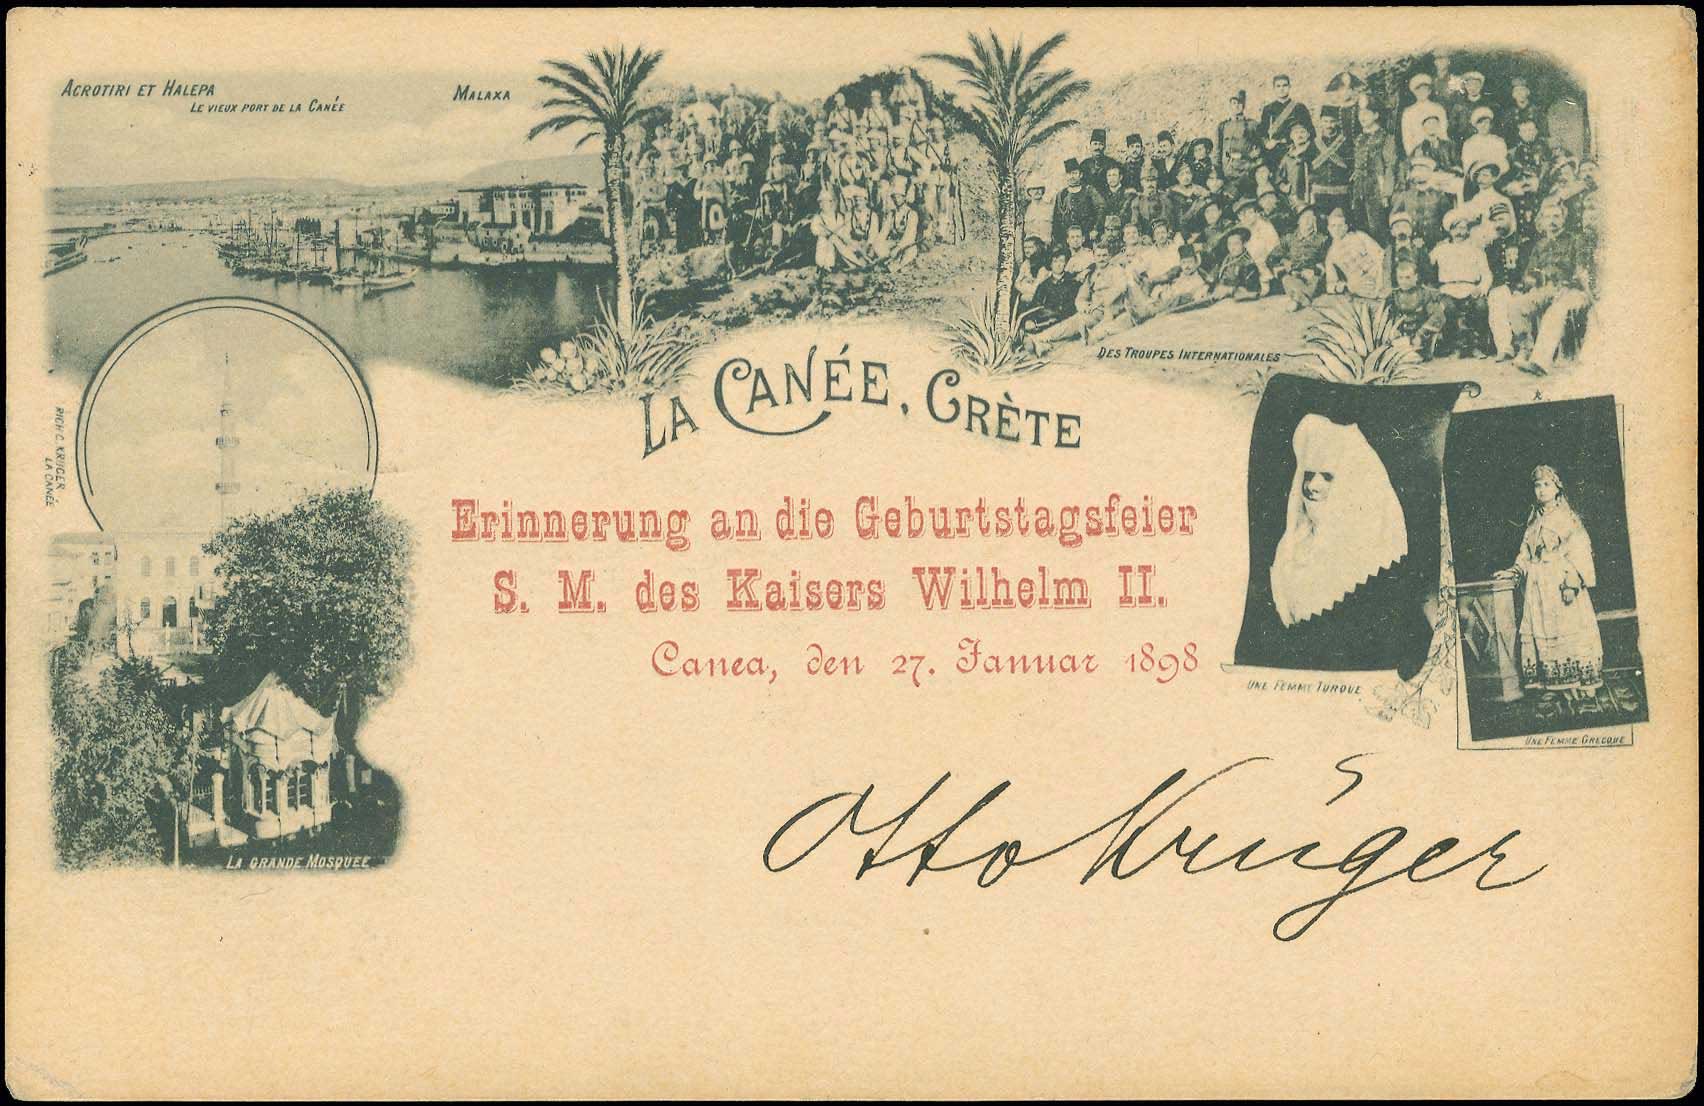 ACROTIRI ET HALEPA
LE VIEUX PORT DE LA CANÉE
MALAXA
DES TROUPES INTERNATIONALES
LA CANÉE, CRÈTE
RICH. C. KRÜGER
LA CANÉE
Erinnerung an die Geburtstagsfeier
S. M. des Kaisers Wilhelm II.
Canea, den 27. Januar 1898
UNE FEMME TURQUE
UNE FEMME GRECQUE
Otto Krüger
LA GRANDE MOSQUÉE